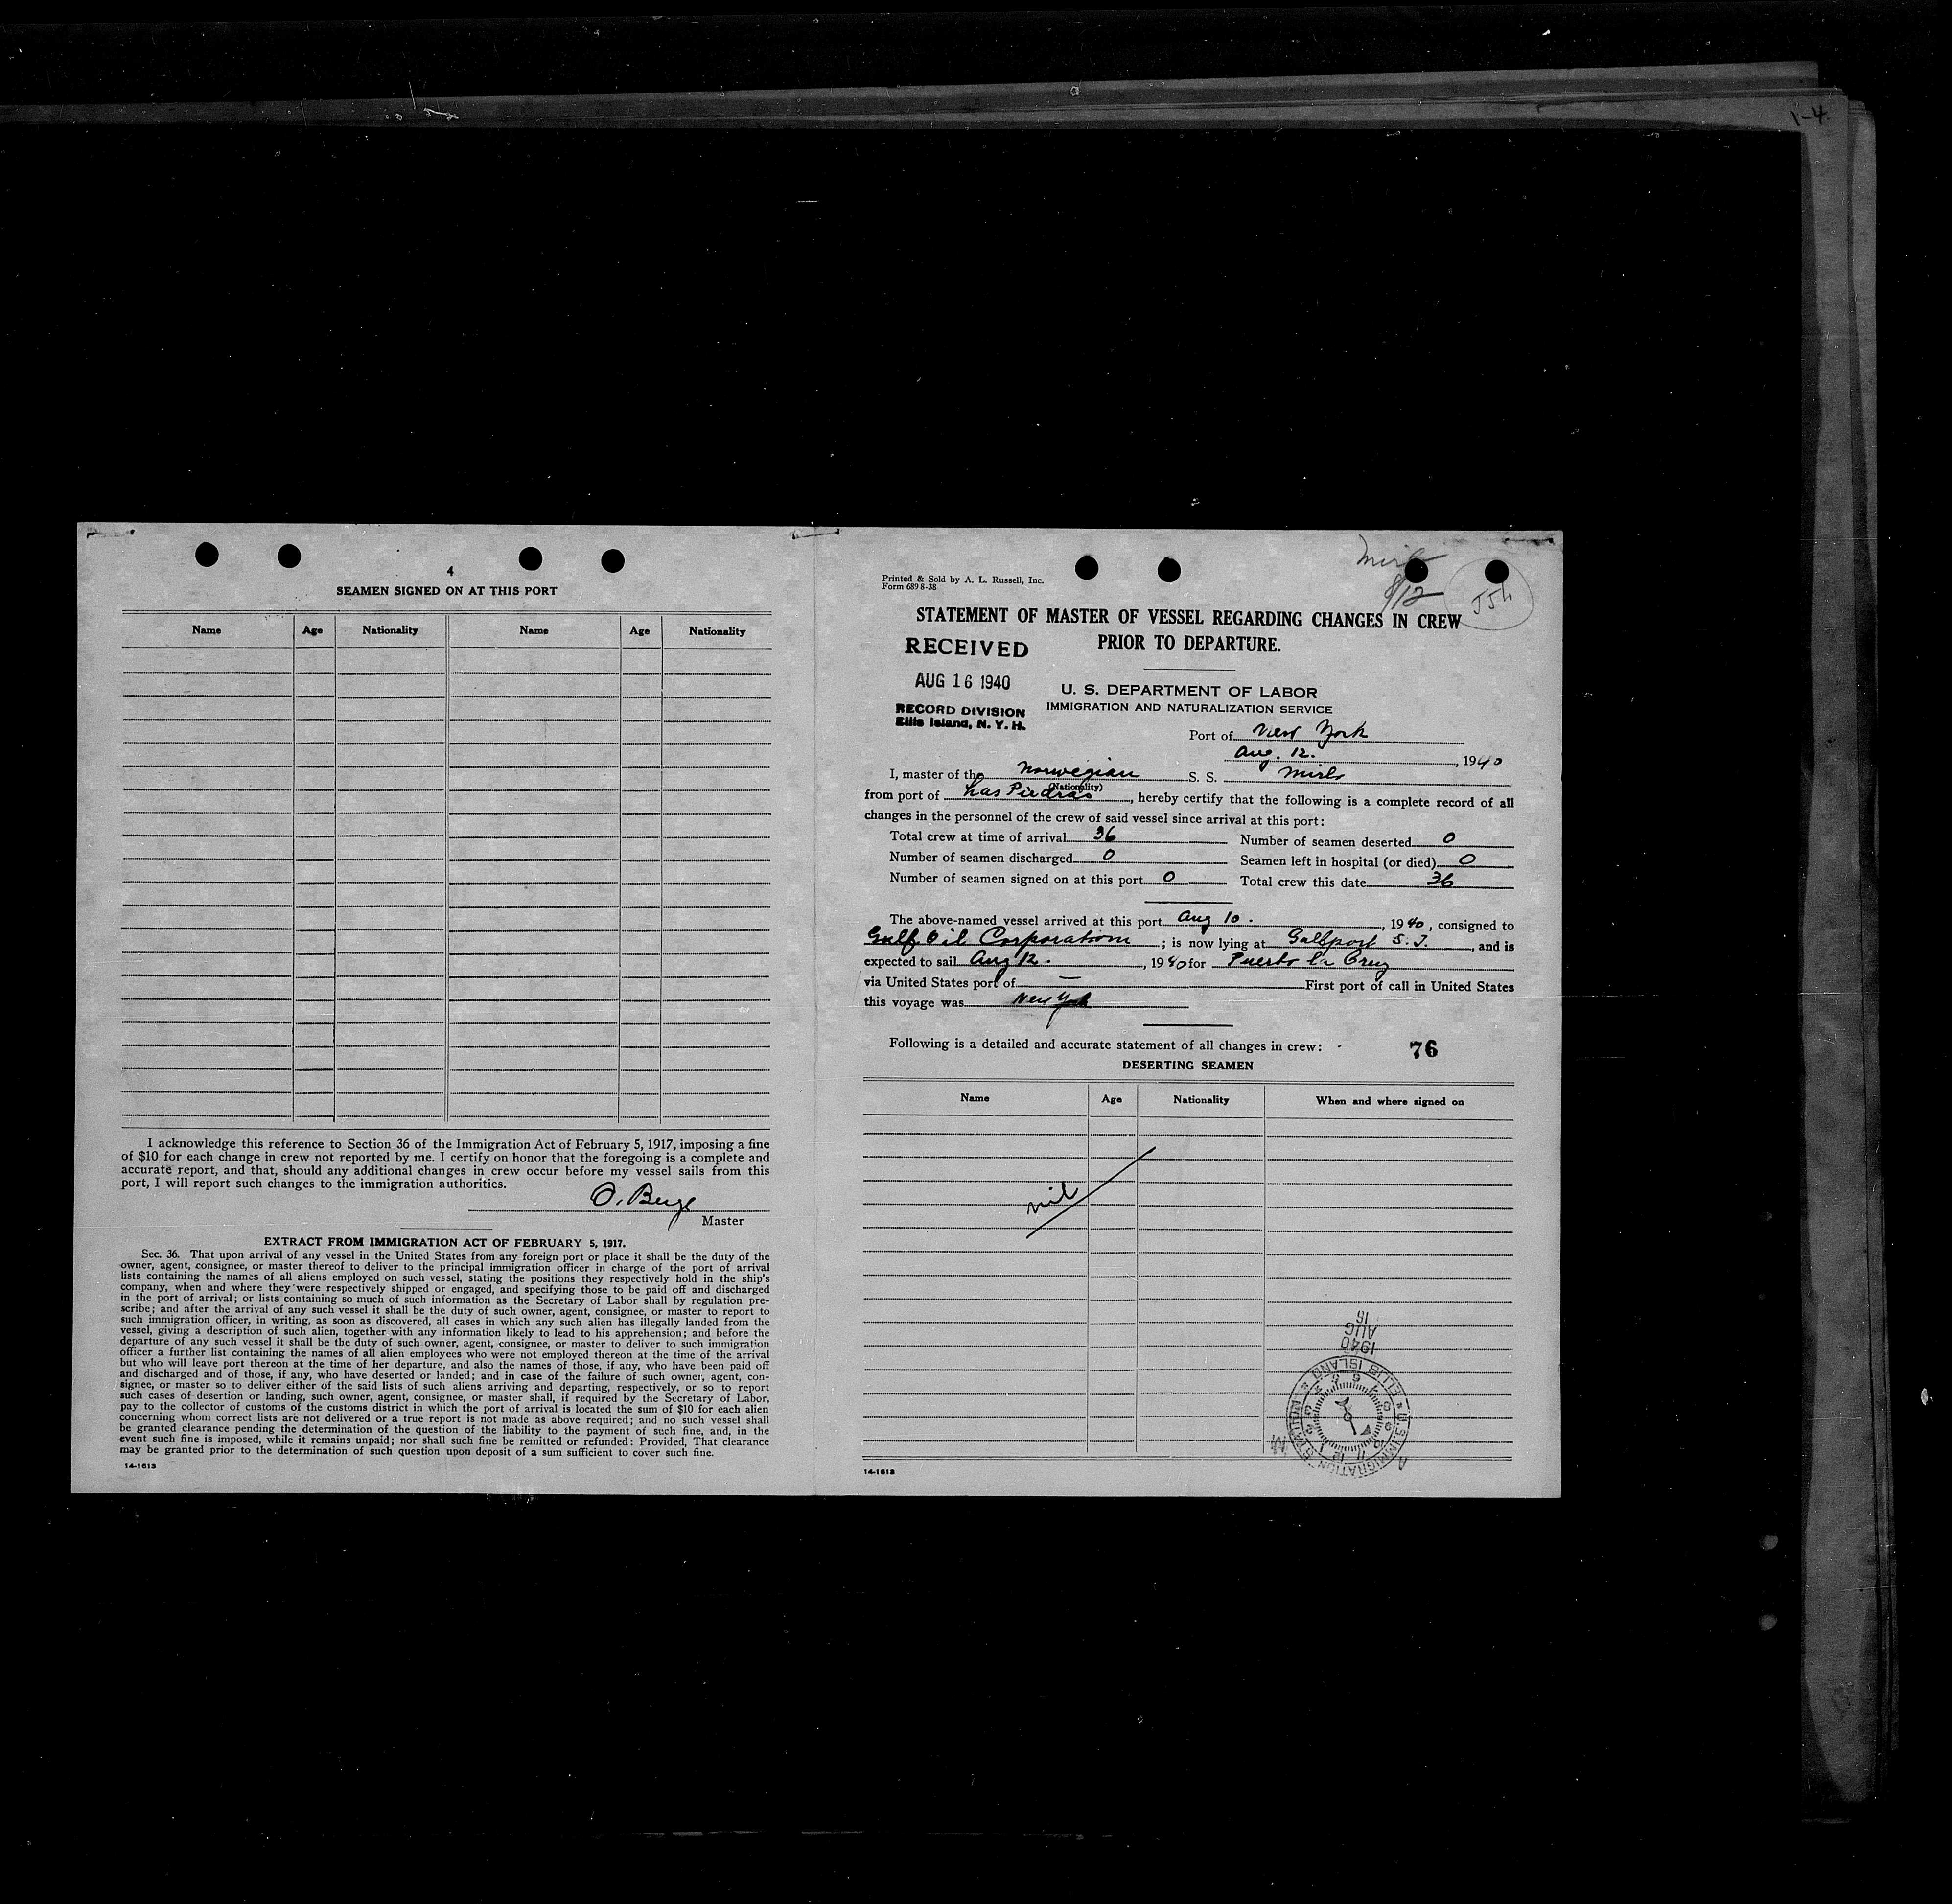 1-4
4
SEAMEN SIGNED ON AT THIS PORT
Name Age Nationality Name Age Nationality
I acknowledge this reference to Section 36 of the Immigration Act of February 5, 1917, imposing a fine
of $10 for each change in crew not reported by me. I certify on honor that the foregoing is a complete and
accurate report, and that, should any additional changes in crew occur before my vessel sails from this
port, I will report such changes to the immigration authorities.
O. Berge
Master
EXTRACT FROM IMMIGRATION ACT OF FEBRUARY 5, 1917.
Sec. 36. That upon arrival of any vessel in the United States from any foreign port or place it shall be the duty of the
owner, agent, consignee, or master thereof to deliver to the principal immigration officer in charge of the port of arrival
lists containing the names of all aliens employed on such vessel, stating the positions they respectively hold in the ship's
company, when and where they were respectively shipped or engaged, and specifying those to be paid off and discharged
in the port of arrival; or lists containing so much of such information as the Secretary of Labor shall by regulation pre-
scribe; and after the arrival of any such vessel it shall be the duty of such owner, agent, consignee, or master to report to
such immigration officer, in writing, as soon as discovered, all cases in which any such alien has illegally landed from the
vessel, giving a description of such alien, together with any information likely to lead to his apprehension; and before the
departure of any such vessel it shall be the duty of such owner, agent, consignee, or master to deliver to such immigration
officer a further list containing the names of all alien employees who were not employed thereon at the time of the arrival
but who will leave port thereon at the time of her departure, and also the names of those, if any, who have been paid off
and discharged and of those, if any, who have deserted or landed; and in case of the failure of such owner, agent, con-
signee, or master so to deliver either of the said lists of such aliens arriving and departing, respectively, or so to report
such cases of desertion or landing, such owner, agent, consignee, or master shall, if required by the Secretary of Labor,
pay to the collector of customs of the customs district in which the port of arrival is located the sum of $10 for each alien
concerning whom correct lists are not delivered or a true report is not made as above required; and no such vessel shall
be granted clearance pending the determination of the question of the liability to the payment of such fine, and, in the
event such fine is imposed, while it remains unpaid; nor shall such fine be remitted or refunded: Provided, That clearance
may be granted prior to the determination of such question upon deposit of a sum sufficient to cover such fine.
14-1613
Mirlo
8/12
Printed & Sold by A. L. Russell, Inc.
Form 689 8-38
STATEMENT OF MASTER OF VESSEL REGARDING CHANGES IN CREW
PRIOR TO DEPARTURE.
RECEIVED
AUG 16 1940
RECORD DIVISION
Ellis Island, N. Y. H.
U. S. DEPARTMENT OF LABOR
IMMIGRATION AND NATURALIZATION SERVICE
Port of New York
Aug. 12. , 1940
I, master of the Norwegian S. S. Mirlo
(Nationality)
from port of Las Piedras, hereby certify that the following is a complete record of all
changes in the personnel of the crew of said vessel since arrival at this port:
Total crew at time of arrival 36 Number of seamen deserted 0
Number of seamen discharged 0 Seamen left in hospital (or died) 0
Number of seamen signed on at this port 0 Total crew this date 36
The above-named vessel arrived at this port Aug 10. , 1940, consigned to
Gulf Oil Corporation ; is now lying at Gulfport S. I. , and is
expected to sail Aug 12. , 1940 for Puerto la Cruz
via United States port of — First port of call in United States
this voyage was New York
Following is a detailed and accurate statement of all changes in crew:
76
DESERTING SEAMEN
Name Age Nationality When and where signed on
nil
AUG 16
1940
U.S. IMMIGRATION STATION ELLIS ISLAND
14-1613